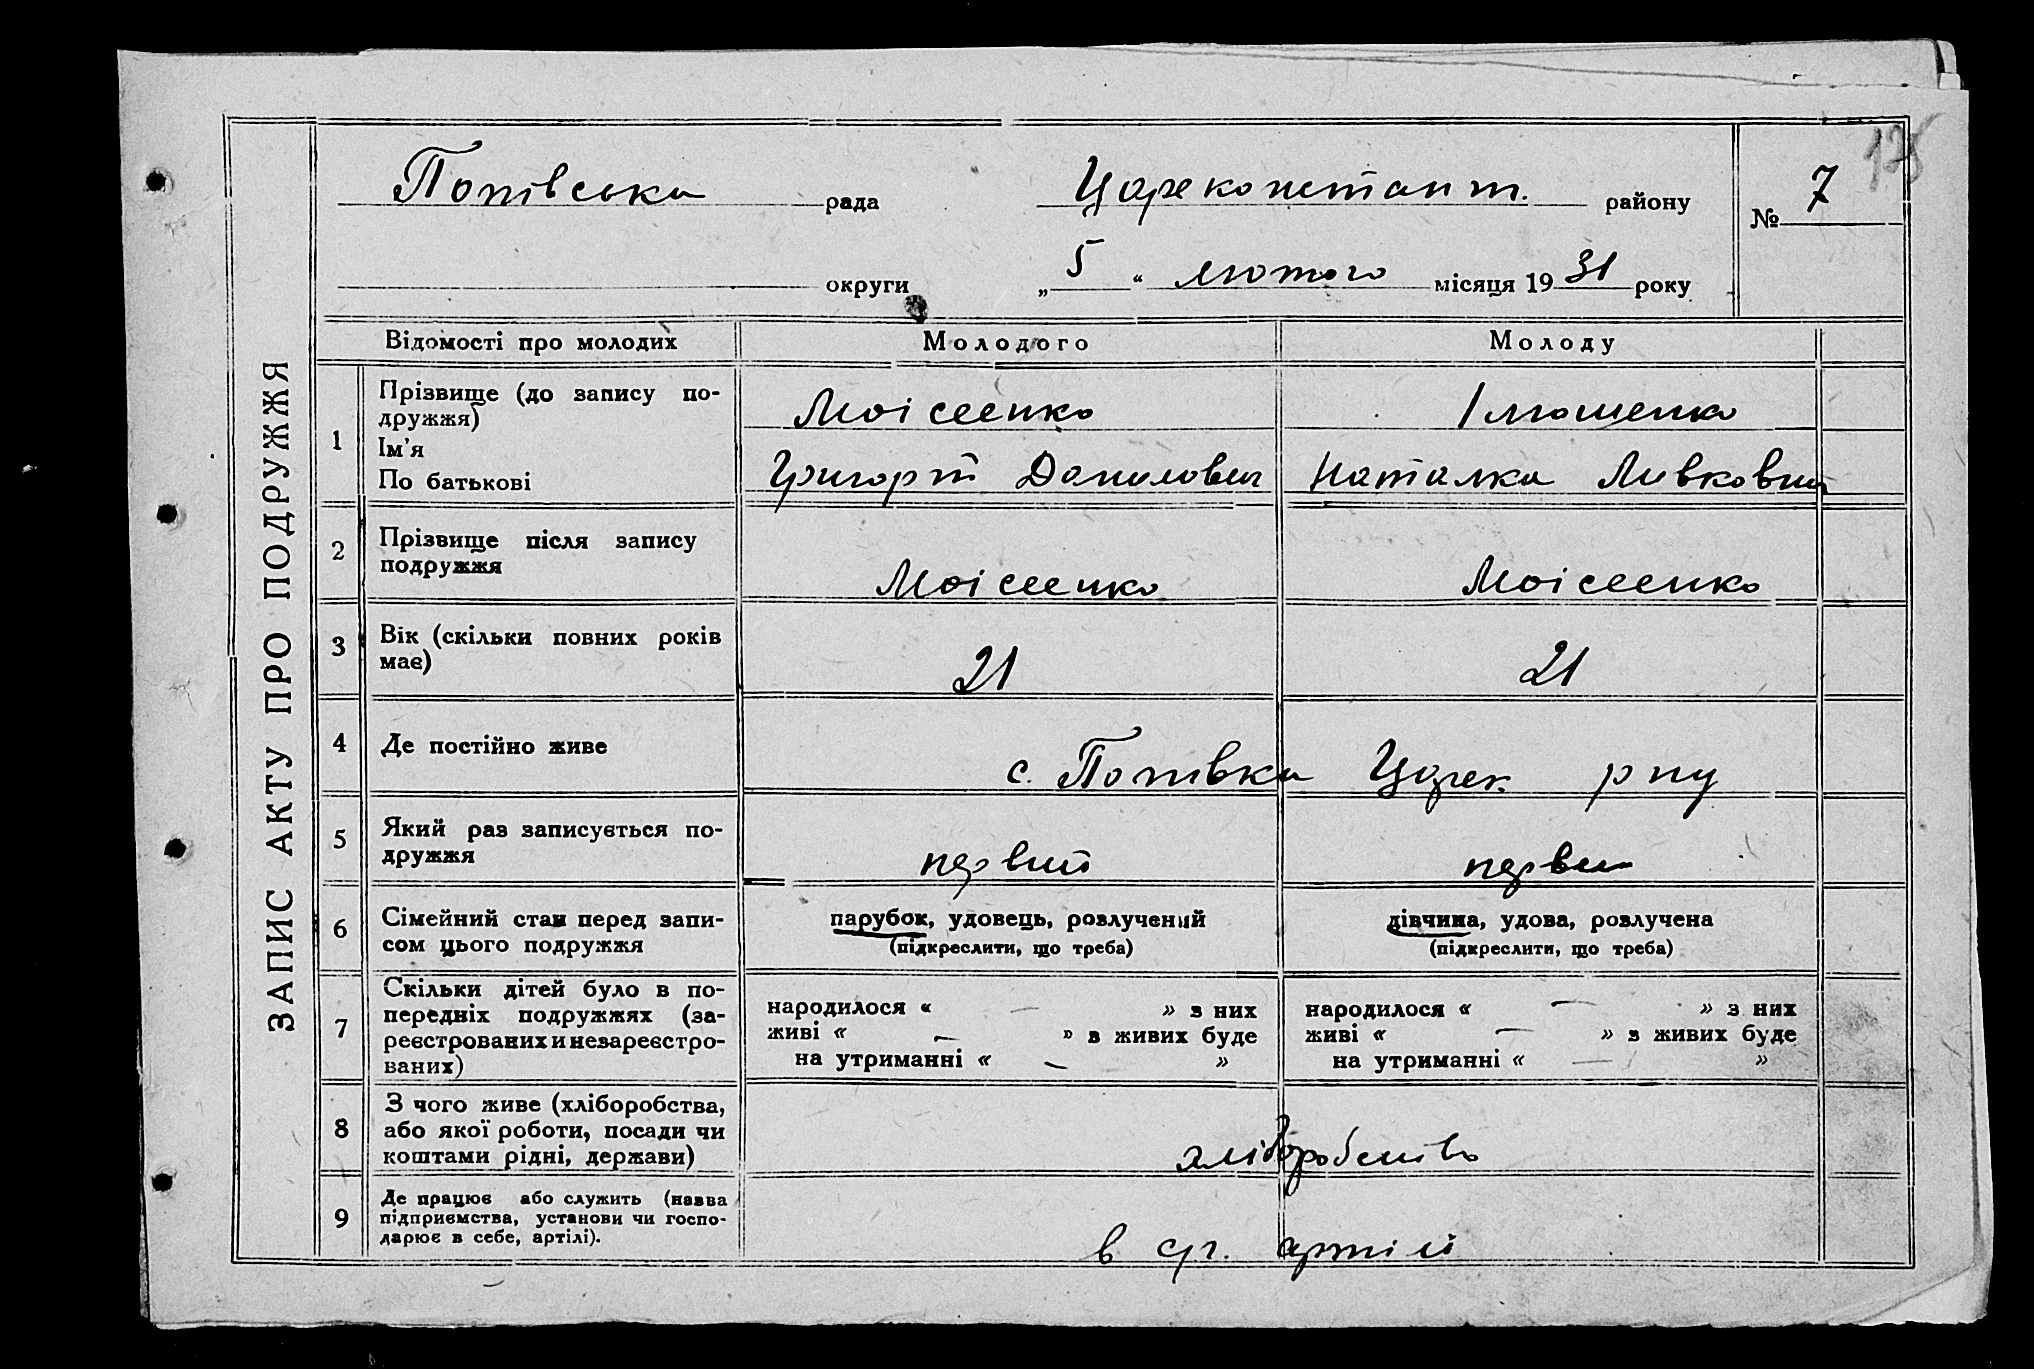 175
Попівська рада Цареконстант. району № 7
округи „ 5 “ лютого місяця 19 31 року
ЗАПИС АКТУ ПРО ПОДРУЖЖЯ
Відомості про молодих Молодого Молоду
1 Прізвище (до запису по-
дружжя) Моісеенко
Ім'я
По батькові Григорій Данилович Наталка
2 Прізвище після запису
подружжя Моісеенко Моісеенко
3 Вік (скільки повних років
має) 21 21
4 Де постійно живе с. Попівка Царек. рну
5 Який раз записується по-
дружжя первий первий
6 Сімейний стан перед запи-
сом цього подружжя
парубок, удовець, розлучений
(підкреслити, що треба)
дівчина, удова, розлучена
(підкреслити, що треба)
7 Скільки дітей було в по-
передніх подружжях (за-
реєстрованих и незареєстро-
ваних)
народилося « — » з них
живі « — » з живих буде
на утриманні « — »
народилося « — » з них
живі « — » з живих буде
на утриманні « — »
8 З чого живе (хліборобства,
або якої роботи, посади чи
коштами рідні, держави) хліборобство
9 Де працює або служить (назва
підприємства, установи чи госпо-
дарює в себе, артілі). в с/г. артілі